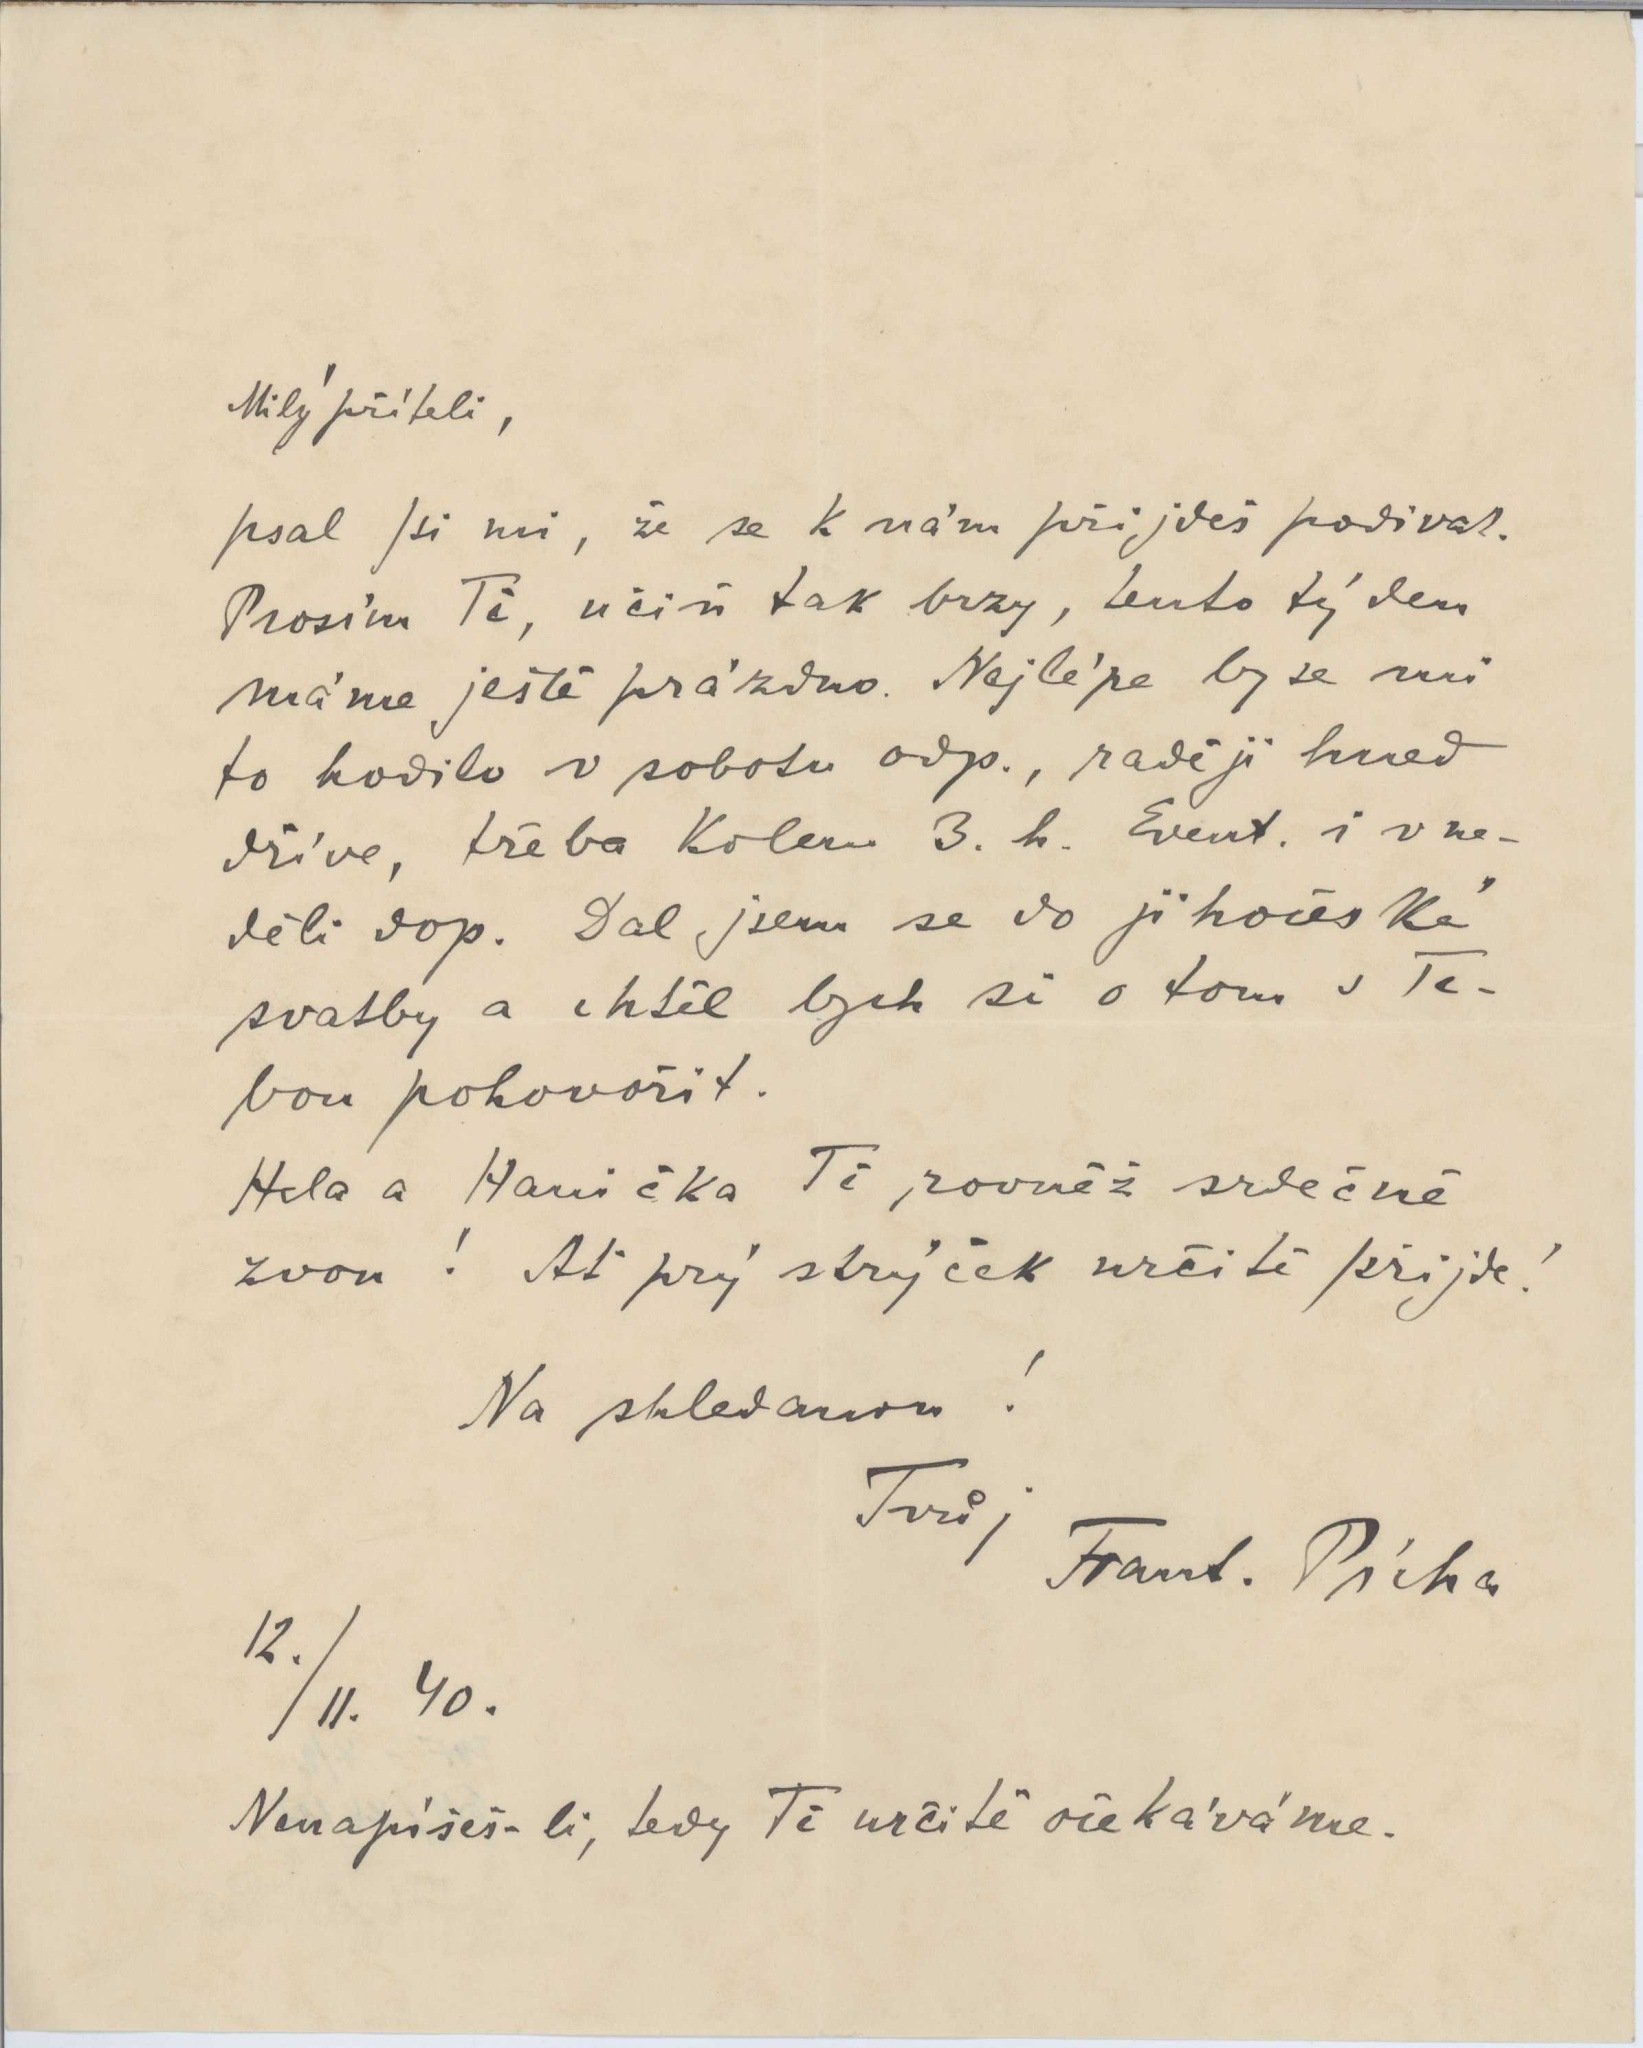 Milý příteli,
psal jsi mi, že se k nám přijdeš podívat.
Prosím Tě, učiň tak brzy, tento týden
máme ještě prázdno. Nejlépe by se mi
to hodilo v sobotu odp., raději hned
dříve, třeba kolem 3. h. Event. i v ne-
děli dop. Dal jsem se do jihočeské
svatby a chtěl bych si o tom s Te-
bou pohovořit.
Hela a Hanička Tě rovněž srdečně
zvou! Ať prý strýček určitě přijde!
Na shledanou!
Tvůj
Frant. Pícha
12./11. 40.
Nenapíšeš-li, tedy Tě určitě očekáváme.